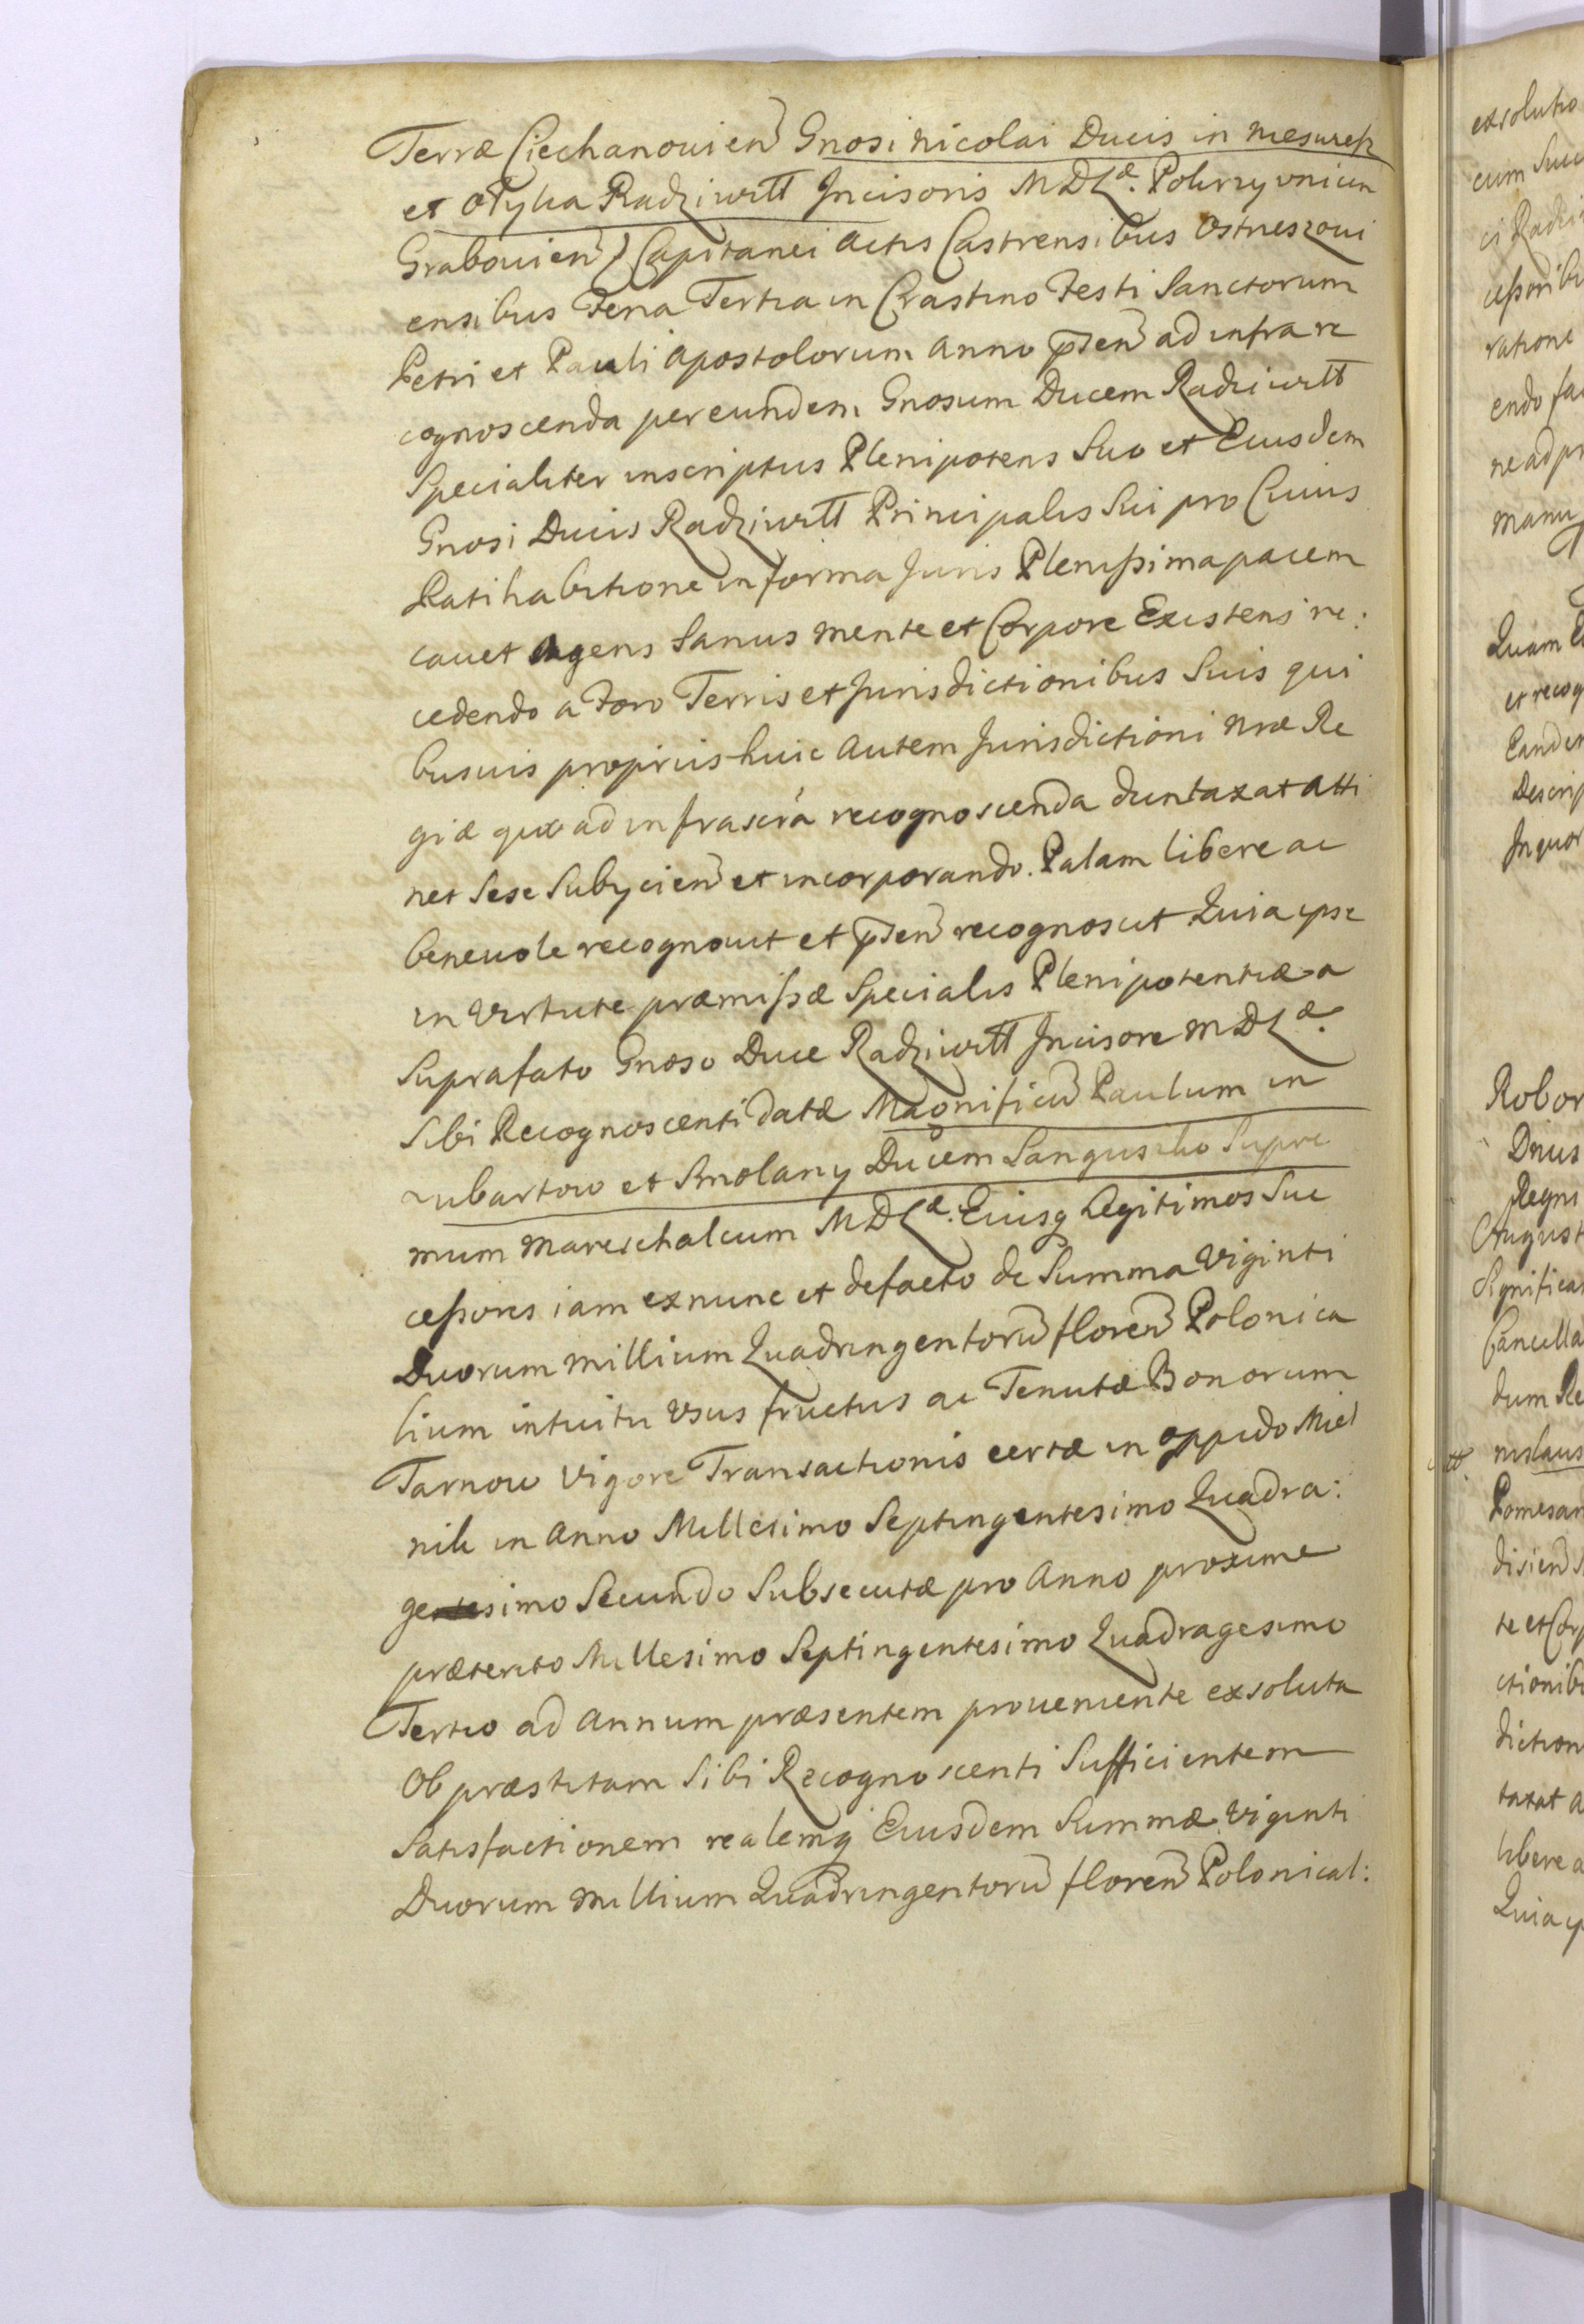 Terræ Ciechanovien Gnosi Nicolai Ducis in
et Olyka Radziwiłł Incisoris MDLæ.
Grabovien Capitanei Actis Castrensibus Ostrzeszovi
ensibus Feria Tertia in Crastino Festi Sanctorum
Petri et Pauli Apostolorum Anno pñten ad infra re
cognoscenda per eundem Gnosum Ducem Radziwiłł
Specialiter inscriptus Plenipotens Suo et Eiusdem
Gnosi Ducis Radziwiłł Principalis Sui pro Cuius
Ratihabitione in forma Juris Plenissima pacem
cauet Agens Sanus Mente et Corpore Existens re:
cedendo a Foro Terris et Jurisdictionibus Suis qui
busuis proprijs huic Autem Jurisdictioni Nræ Re
giæ quo ad infrascra recognoscenda duntaxat Atti
net Sese Subycien et incorporando. Palam libere ac
beneuole recognouit et pñten recognoscit Quia ipse
in Virtute præmissæ Specialis Plenipotentiæ a
Suprafato Gnoso Duce Radziwiłł Incisore MDLæ.
Sibi Recognoscenti datæ Magnificu Paulum in
Lubartow et Smolany Ducem Sanguszko Supre
mum Mareschalcum MDLæ. Eiusq Legitimos Suc
cessores iam ex nunc et de facto de Summa Viginti
Duorum Millium Quadringentoru floren Polonica
lium intuitu Usus fructus ac Tenutæ Bonorum
Tarnow Vigore Transactionis certæ in oppido Miel
nik in Anno Millesimo Septingentesimo Quadra:
gesimo Secundo Subsecutæ pro Anno proxime
præterito Millesimo Septingentesimo Quadragesimo
Tertio ad Annum præsentem proueniente exsoluta
Ob præstitam Sibi Recognoscenti Sufficientem
Satisfactionem realemq Eiusdem Summæ Viginti
Duorum Millium Quadringentoru floren Polonical:
exsolutio
cum Succ
ratione
endo fa
ne ad pr
manu
Quam
et recog
Eand
Descrip
In quor
Robor
Regni
August
Significa
Cancella
dum Re
nislaus
Pomesan
te et Corp
ctionib
diction
taxat a
libere a
Quia ip